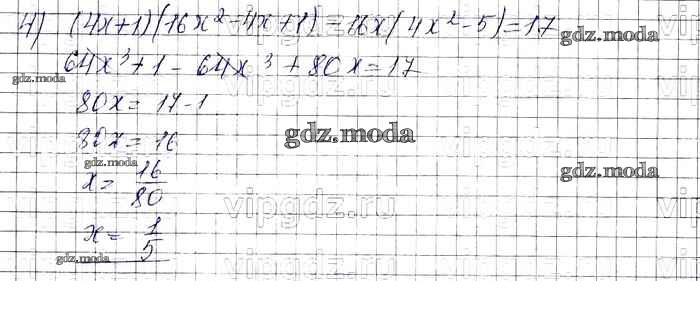 4) (4x+1)(16x²-4x+1)-16x(4x²-5)=17 gdz.moda
64x³+1-64x³+80x=17
gdz.moda
80x=17-1 vipgdz.ru
80x=16 gdz.moda
gdz.moda
x=16/80 vipgdz.ru
x=1/5 vipgdz.ru
gdz.moda
vipgdz.ru